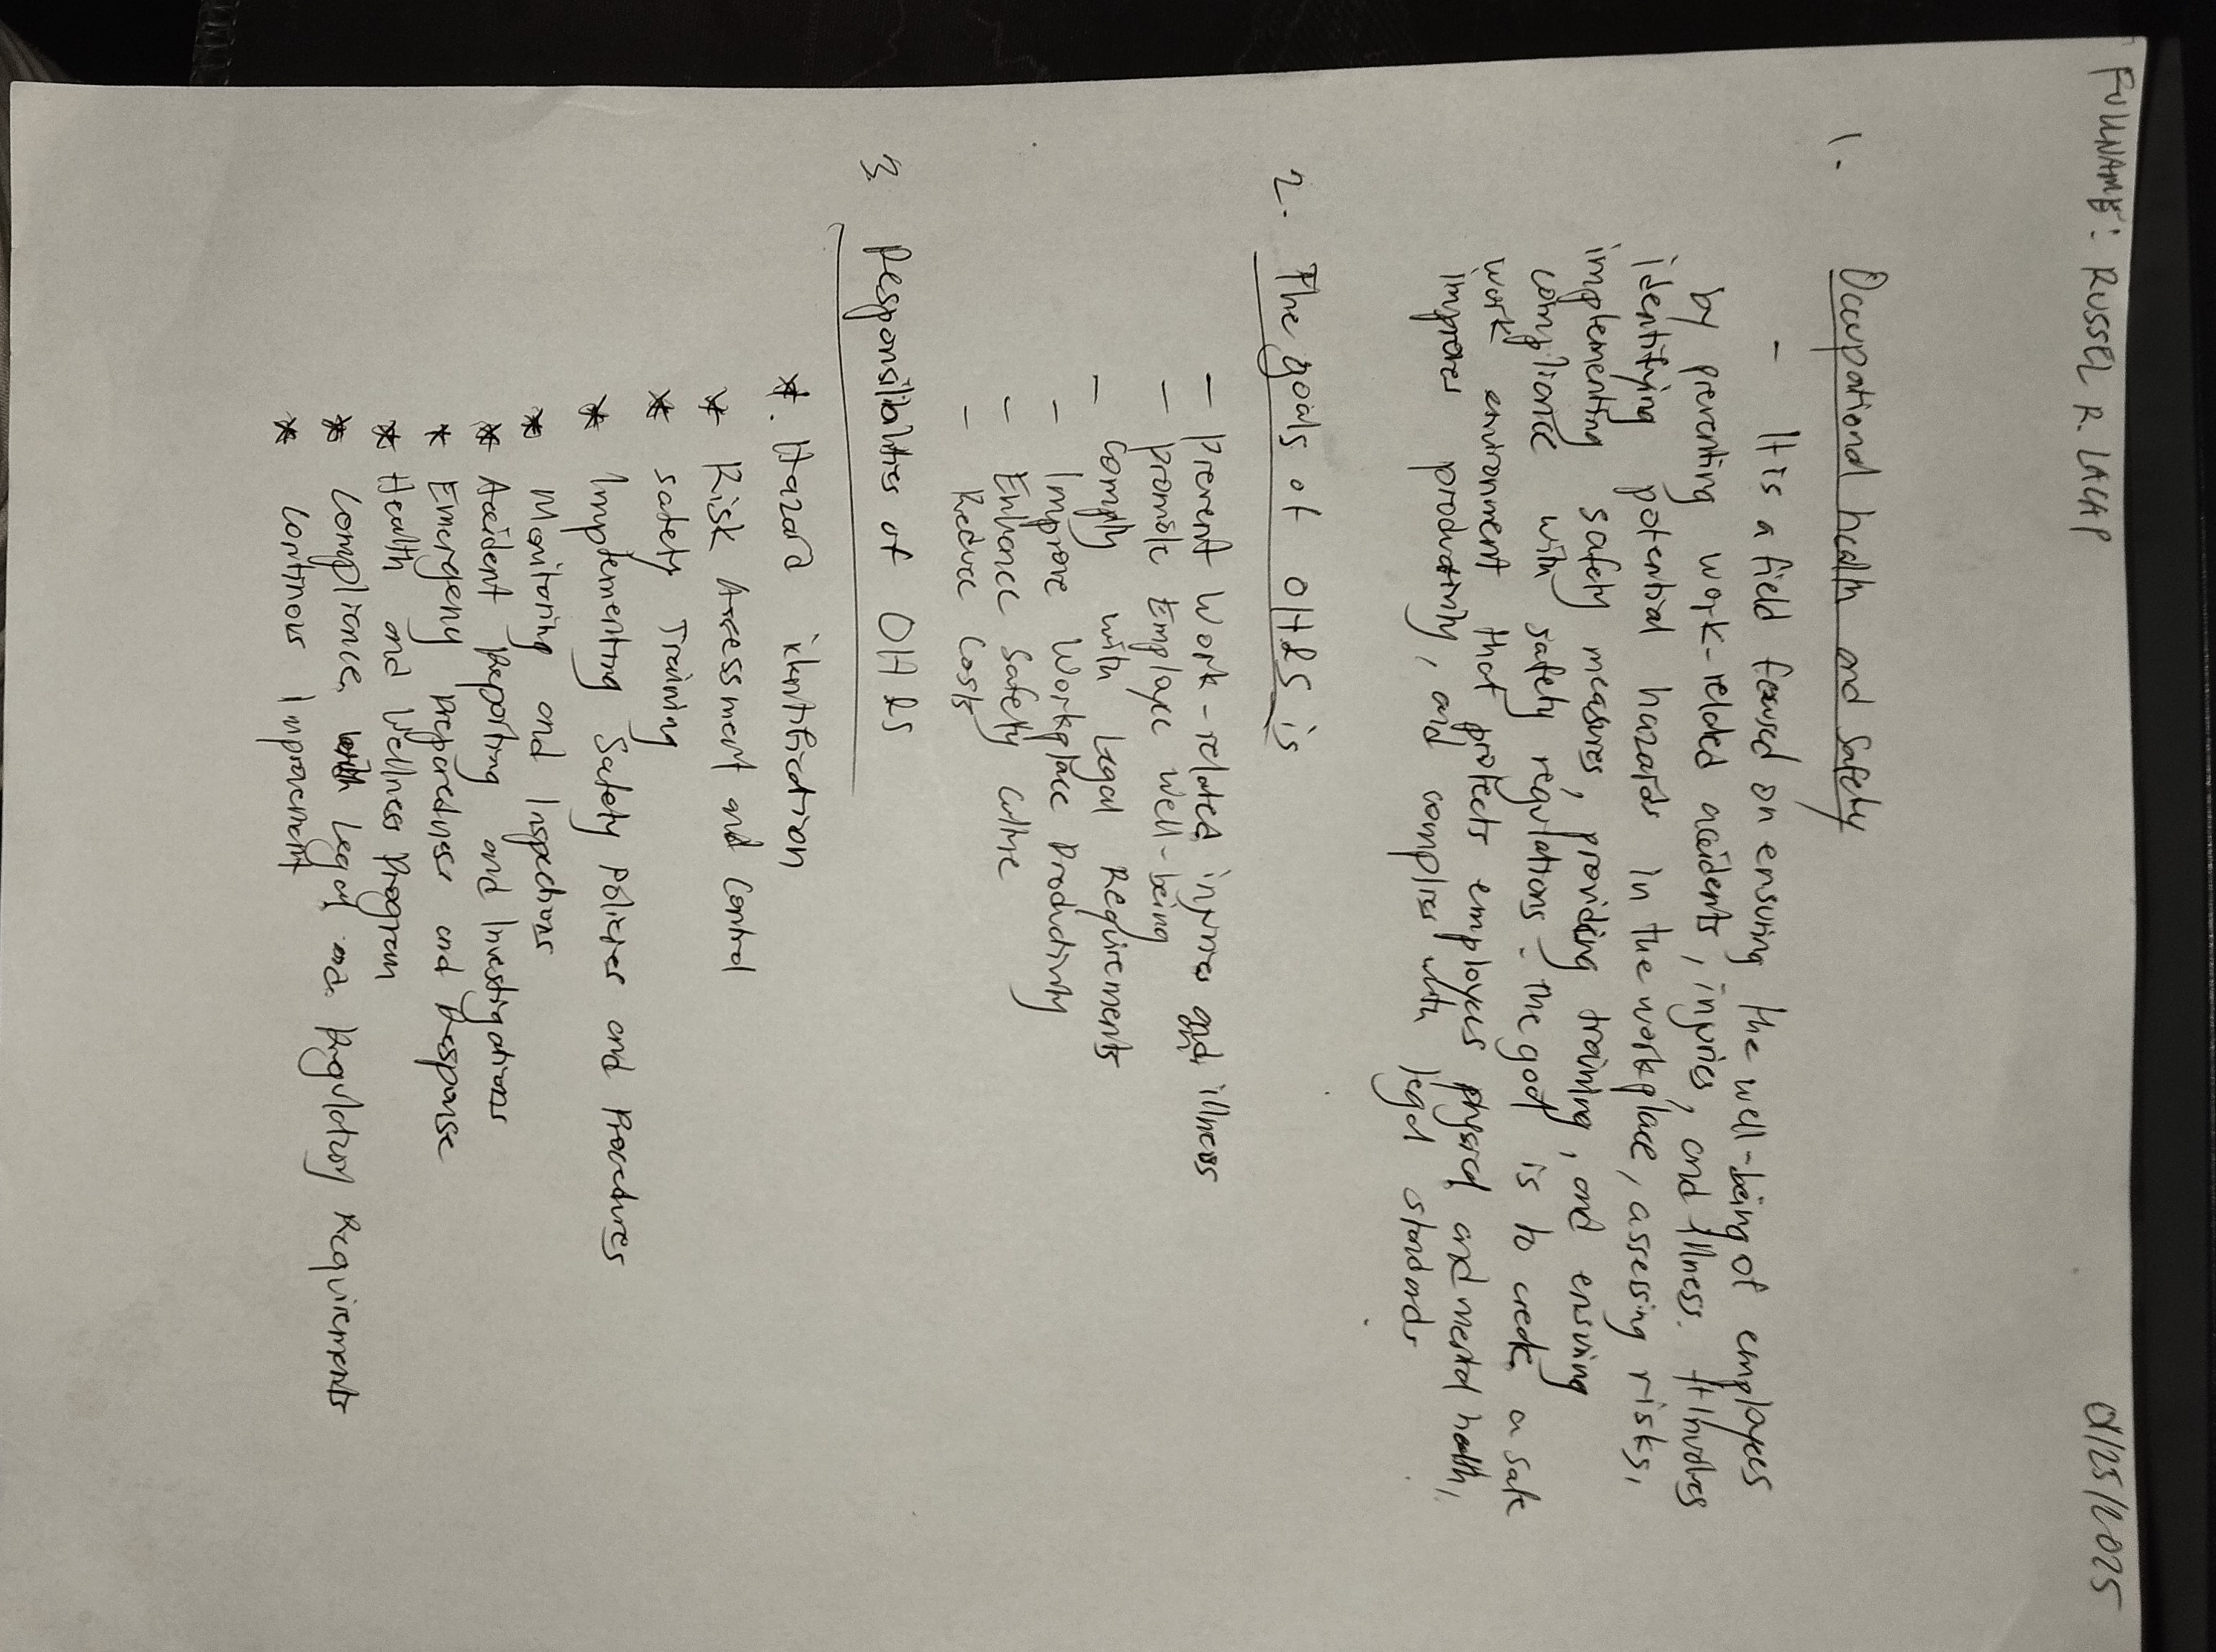 FULLNAME: RUSSEL R. LACAP
01/25/2025
1. Occupational health and Safety
- It is a field focused on ensuring the well-being of employees
by preventing work-related accidents, injuries, and illness. It Involves
identifying potential hazards in the workplace, assessing risks,
implementing safety measures, providing training, and ensuring
compliance with safety regulations. The goal is to create a safe
work environment that protects employees physical and mental health,
improves productivity, and complies with legal standards
2. The goals of OH&S is
- Prevent Work-related injuries and illness
- promote Employee Well-being
- Comply with Legal Requirements
- Improve Workplace Productivity
- Enhance Safety Culture
- Reduce Costs
3. Responsilibilities of OH&S
* . Hazard identification
* Risk Assessment and Control
* Safety Training
* Implementing Safety Policies and Procedures
* Monitoring and Inspections
* Accident Reporting and Investigations
* Emergeny Preparedness and Response
* Health and Wellness Program
* Compliance with Legal and Regulatory Requirements
* Continous Improvement